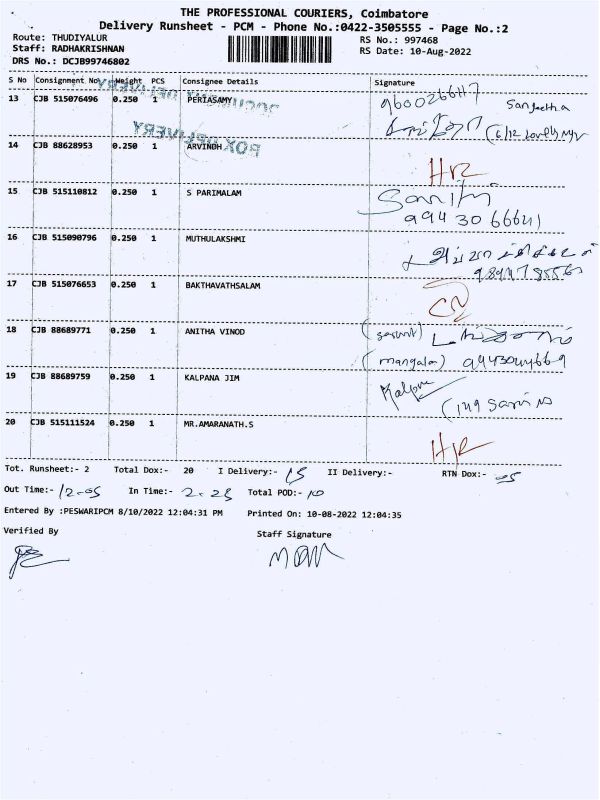 THE PROFESSIONAL COURIERS, Coimbatore
Delivery Runsheet - PCM - Phone No.:0422-3505555 - Page No.:2
Route: THUDIYALUR
RS No.: 997468
Staff: RADHAKRISHNAN
RS Date: 10-Aug-2022
DRS No.: DCJB99746802
S No Consignment No Weight PCS Consignee Details Signature
13 CJB 515076496 0.250 1 PERIASAMY Sangeetha
BOX DELIVERY
14 CJB 88628953 0.250 1 ARVINDH
15 CJB 515110812 0.250 1 S PARIMALAM
16 CJB 515090796 0.250 1 MUTHULAKSHMI
17 CJB 515076653 0.250 1 BAKTHAVATHSALAM
18 CJB 88689771 0.250 1 ANITHA VINOD
(mangala)
19 CJB 88689759 0.250 1 KALPANA JIM
Kalpana
20 CJB 515111524 0.250 1 MR.AMARANATH.S
Tot. Runsheet:- 2 Total Dox:- 20 I Delivery:- 15 II Delivery:- RTN Dox:- 05
Out Time:- 12-05 In Time:- 2-25 Total POD:- 10
Entered By :PESWARIPCM 8/10/2022 12:04:31 PM Printed On: 10-08-2022 12:04:35
Verified By
Staff Signature